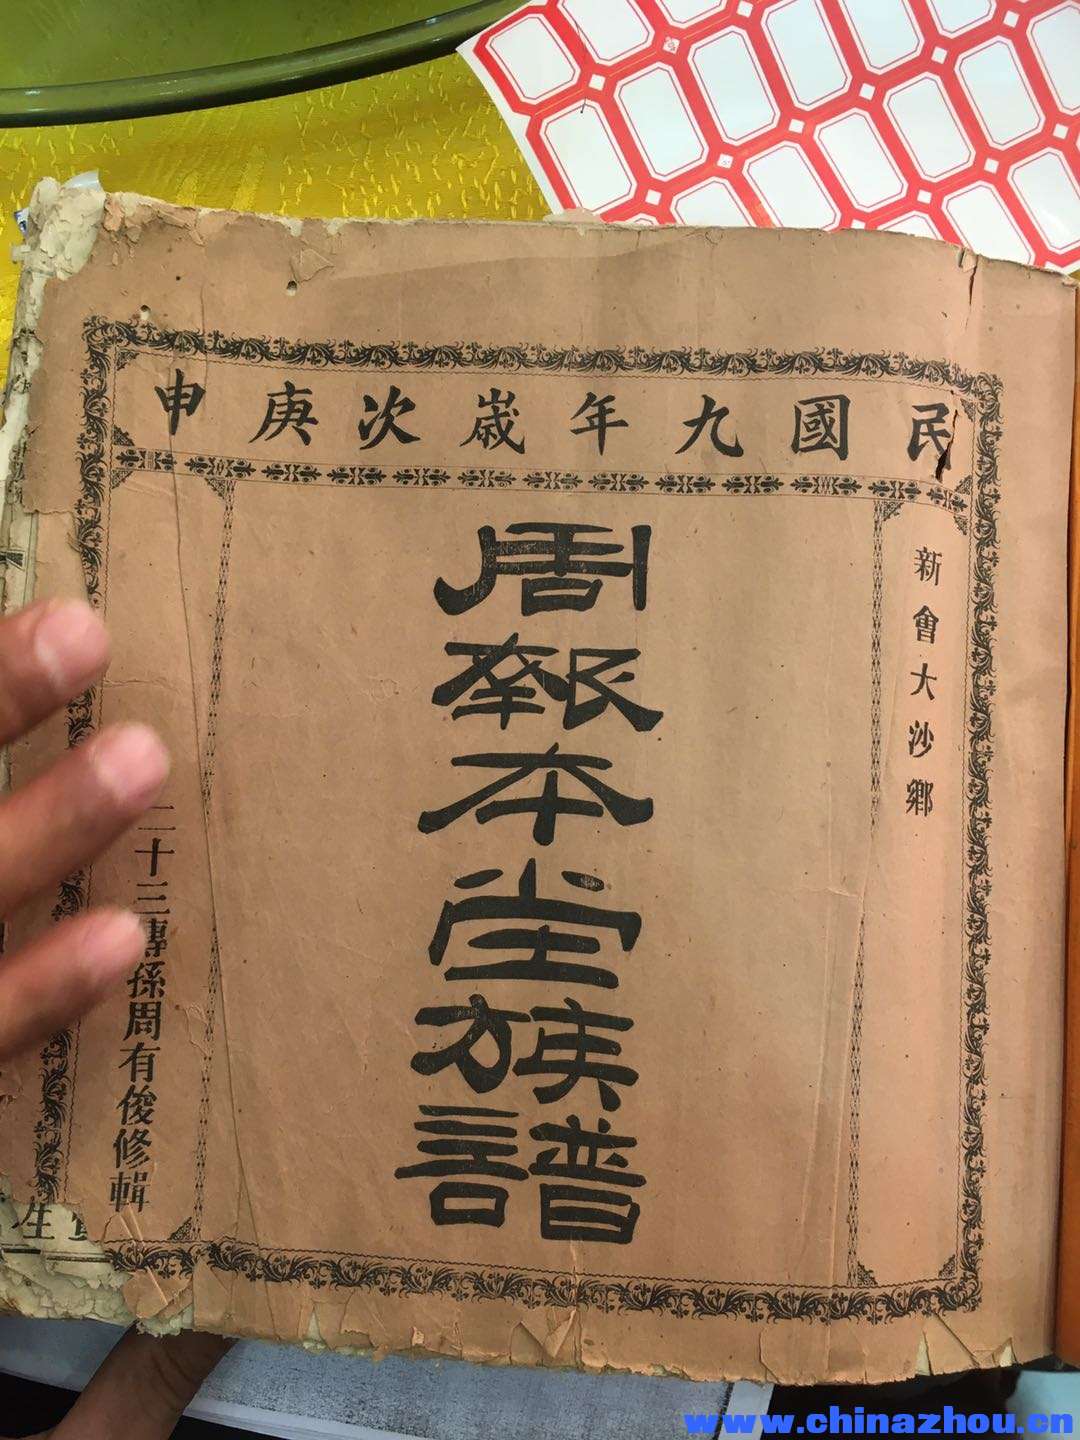 民國九年歲次庚申
新會大沙鄉
周報本堂族譜
二十三傳孫周有俊修輯
生
www.chinazhou.cn